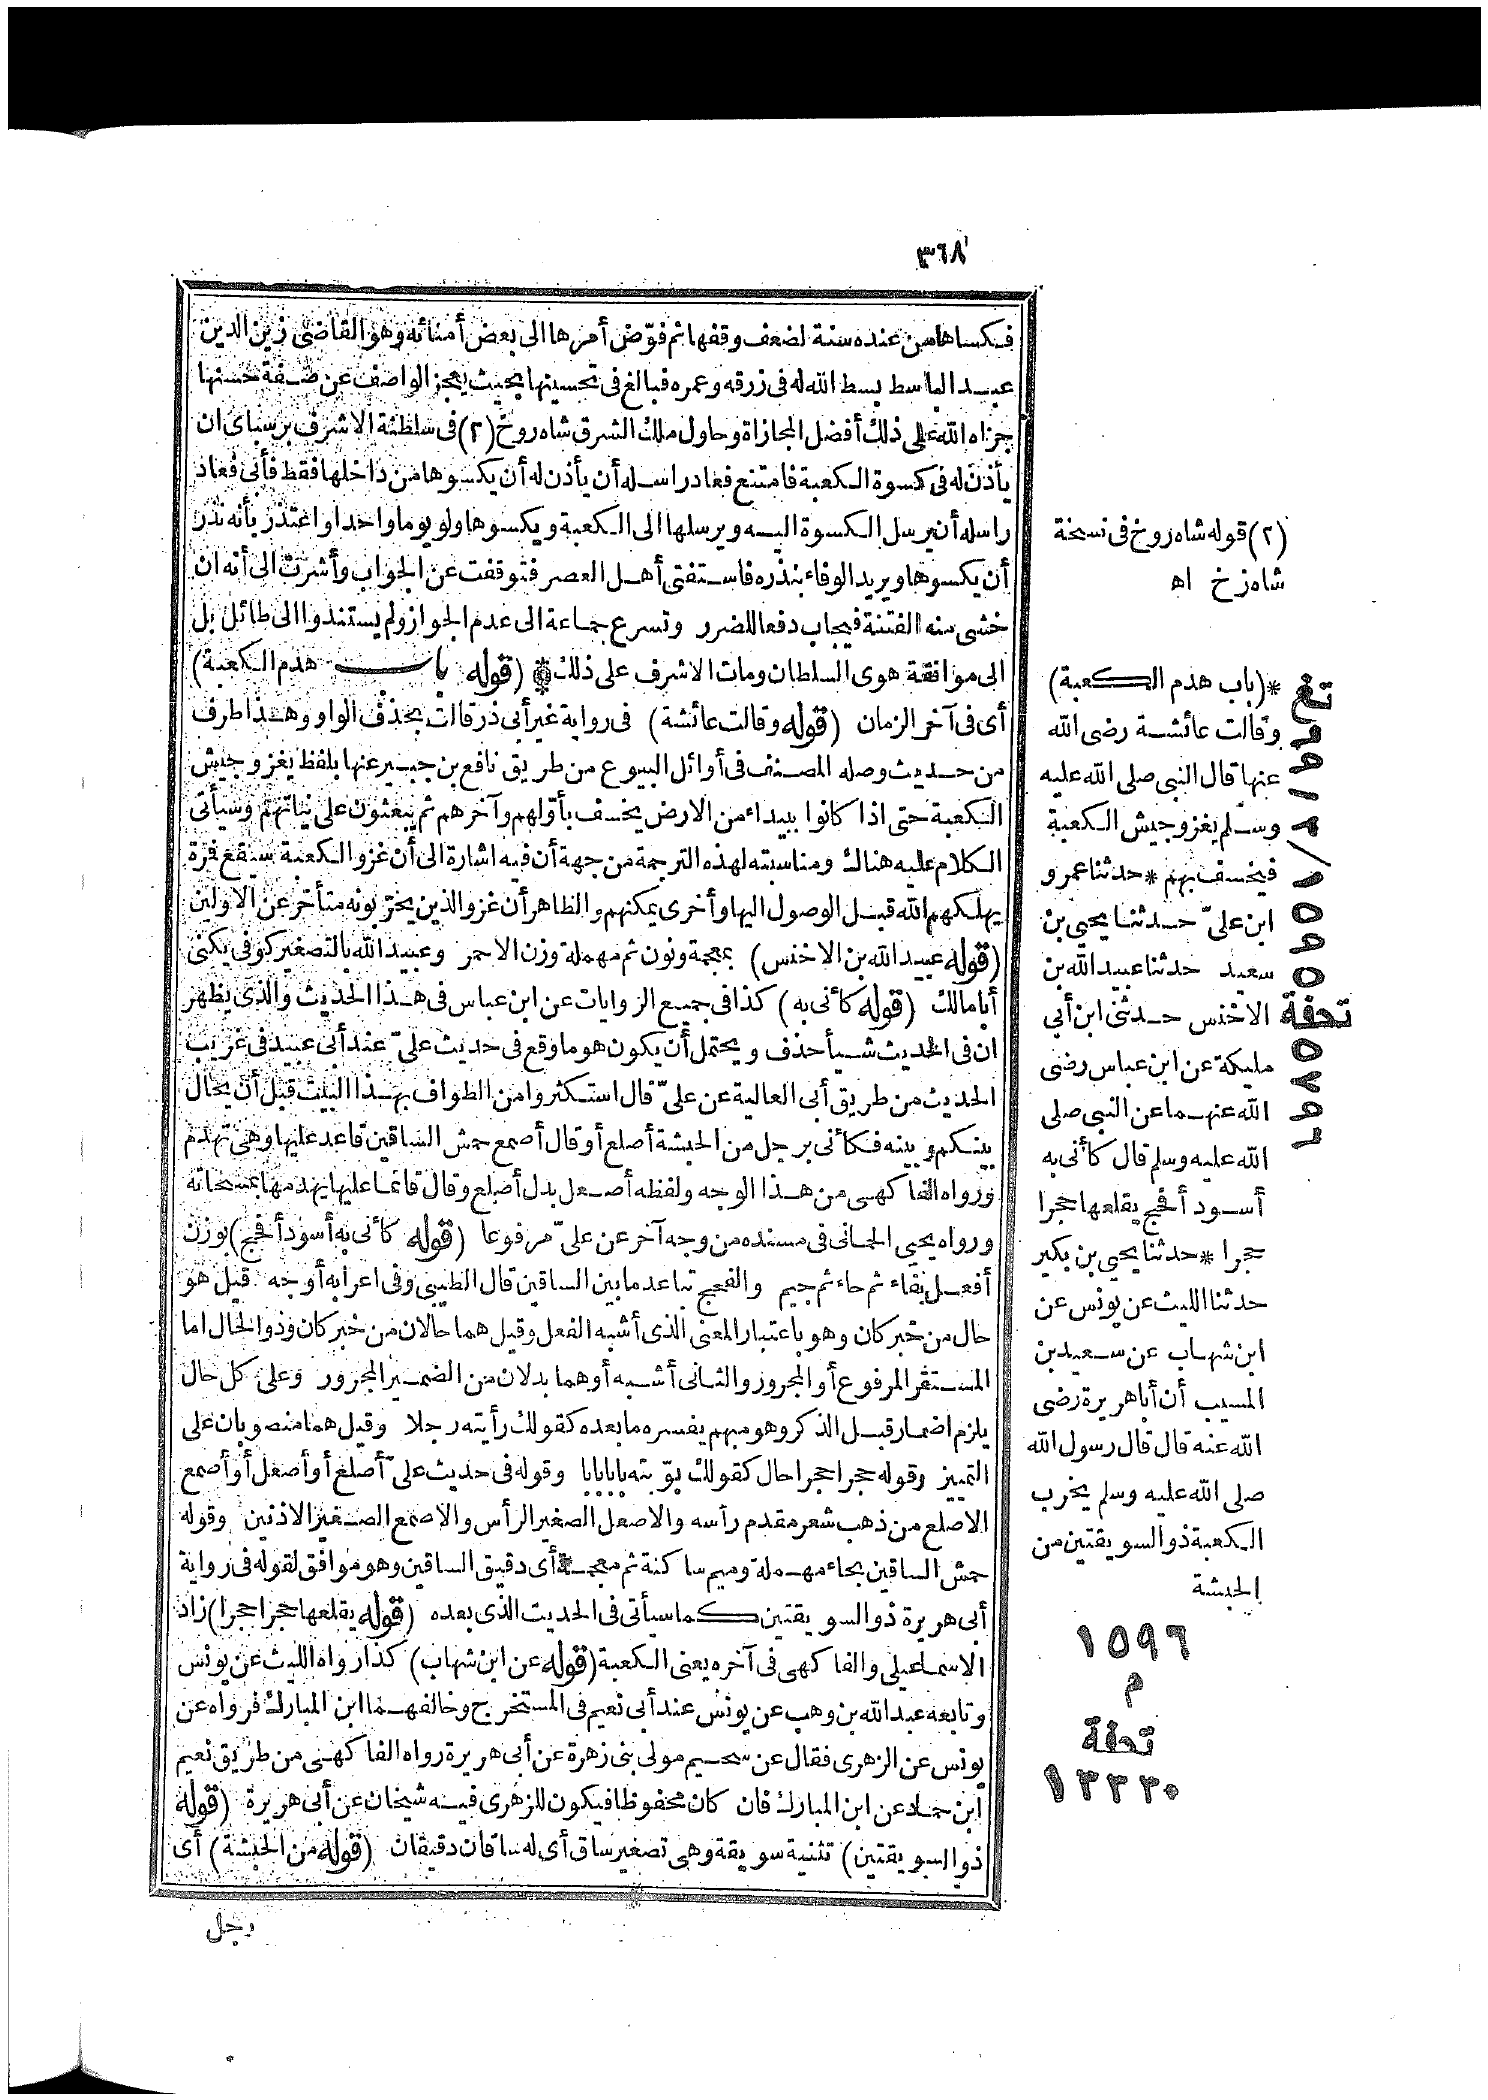 ٣٦٨
فكساها من عنده سنة لضعف وقفها ثم فوّض أمرها الى بعض أمنائه وهو القاضى زين الدين
عبد الباسط بسط الله له فى رزقه وعمره فبالغ فى تحسينها بحيث يعجز الواصف عن صفة حسنها
جزاه الله على ذلك أفضل المجازاة وحاول ملك الشرق شاه روخ (٢) فى سلطنة الاشرف برسباى ان
يأذن له فى كسوة الكعبة فامتنع فعاد راسله أن يأذن له أن يكسوها من داخلها فقط فأبى فعاد
راسله أن يرسل الكسوة اليه ويرسلها الى الكعبة ويكسوها ولو يوما واحدا واعتذر بأنه نذر
أن يكسوها ويريد الوفاء بنذره فاستفتى أهل العصر فتوقفت عن الجواب وأشرت الى أنه ان
خشى منه الفتنة فيجاب دفعا للضرر وتسرع جماعة الى عدم الجواز ولم يستندوا الى طائل بل
الى موافقة هوى السلطان ومات الاشرف على ذلك * (قوله باب هدم الكعبة)
أى فى آخر الزمان (قوله وقالت عائشة) فى رواية غير أبى ذر قالت بحذف الواو وهذا طرف
من حديث وصله المصنف فى أوائل البيوع من طريق نافع بن جبير عنها بلفظ يغزو جيش
الكعبة حتى اذا كانوا ببيداء من الارض يخسف بأولهم وآخرهم ثم يبعثون على نياتهم وسيأتى
الكلام عليه هناك ومناسبته لهذه الترجمة من جهة أن فيه اشارة الى أن غزو الكعبة سيقع فرة
يهلكهم الله قبل الوصول اليها وأخرى يمكنهم والظاهر أن غزو الذين يخربونه متأخر عن الاولين
(قوله عبيد الله بن الاخنس) بمعجمة ونون ثم مهملة وزن الاحمر وعبيد الله بالتصغير كوفى يكنى
أبا مالك (قوله كأنى به) كذا فى جميع الروايات عن ابن عباس فى هذا الحديث والذى يظهر
ان فى الحديث شيأ حذف ويحتمل أن يكون هو ما وقع فى حديث علىّ عند أبى عبيد فى غريب
الحديث من طريق أبى العالية عن علىّ قال استكثروا من الطواف بهذا البيت قبل أن يحال
بينكم وبينه فكأنى برجل من الحبشة أصلع أو قال أصمع حمش الساقين قاعد عليها وهى تهدم
ورواه الفاكهى من هذا الوجه ولفظه أصعل بدل أصلع وقال قائما عليها يهدمها بمسحاته
ورواه يحيى الحمانى فى مسنده من وجه آخر عن علىّ مرفوعا (قوله كأنى به أسود أفحج) بوزن
أفعل بفاء ثم حاء ثم جيم والفحج تباعد ما بين الساقين قال الطيبى وفى اعرابه أوجه قيل هو
حال من خبر كان وهو باعتبار المعنى الذى أشبه الفعل وقيل هما حالان من خبر كان وذو الحال اما
المستقر المرفوع أو المجرور والثانى أشبه أو هما بدلان من الضمير المجرور وعلى كل حال
يلزم اضمار قبل الذكر وهو مبهم يفسره ما بعده كقولك رأيته رجلا وقيل هما منصوبان على
التمييز وقوله حجرا حجرا حال كقولك بوّبته بابا بابا وقوله فى حديث علىّ أصلع أو أصعل أو أصمع
الاصلع من ذهب شعر مقدم رأسه والاصعل الصغير الرأس والاصمع الصغير الاذنين وقوله
حمش الساقين بحاء مهملة وميم ساكنة ثم معجمة أى دقيق الساقين وهو موافق لقوله فى رواية
أبى هريرة ذو السويقتين كما سيأتى فى الحديث الذى بعده (قوله يقلعها حجرا حجرا) زاد
الاسماعيلى والفاكهى فى آخره يعنى الكعبة (قوله عن ابن شهاب) كذا رواه الليث عن يونس
وتابعه عبد الله بن وهب عن يونس عند أبى نعيم فى المستخرج وخالفهما ابن المبارك فرواه عن
يونس عن الزهرى فقال عن سحيم مولى بنى زهرة عن أبى هريرة رواه الفاكهى من طريق نعيم
ابن حماد عن ابن المبارك فان كان محفوظا فيكون للزهرى فيه شيخان عن أبى هريرة (قوله
ذو السويقتين) تثنية سويقة وهى تصغير ساق أى له ساقان دقيقان (قوله من الحبشة) أى
رجل
(٢) قوله شاه روخ فى نسخة
شاه زخ اه
*(باب هدم الكعبة)
وقالت عائشة رضى الله
عنها قال النبى صلى الله عليه
وسلم يغزو جيش الكعبة
فيخسف بهم * حدثنا عمرو
ابن علىّ حدثنا يحيى بن
سعيد حدثنا عبيد الله بن
الاخنس حدثنى ابن أبى
مليكة عن ابن عباس رضى
الله عنهما عن النبى صلى
الله عليه وسلم قال كأنى به
أسود أفحج يقلعها حجرا
حجرا * حدثنا يحيى بن بكير
حدثنا الليث عن يونس عن
ابن شهاب عن سعيد بن
المسيب أن أبا هريرة رضى
الله عنه قال قال رسول الله
صلى الله عليه وسلم يخرب
الكعبة ذو السويقتين من
الحبشة
١٥٩٦
م
تحفة
١٣٣٣٠
تغ
١٥٩٥
تحفة
٥٧٩٦